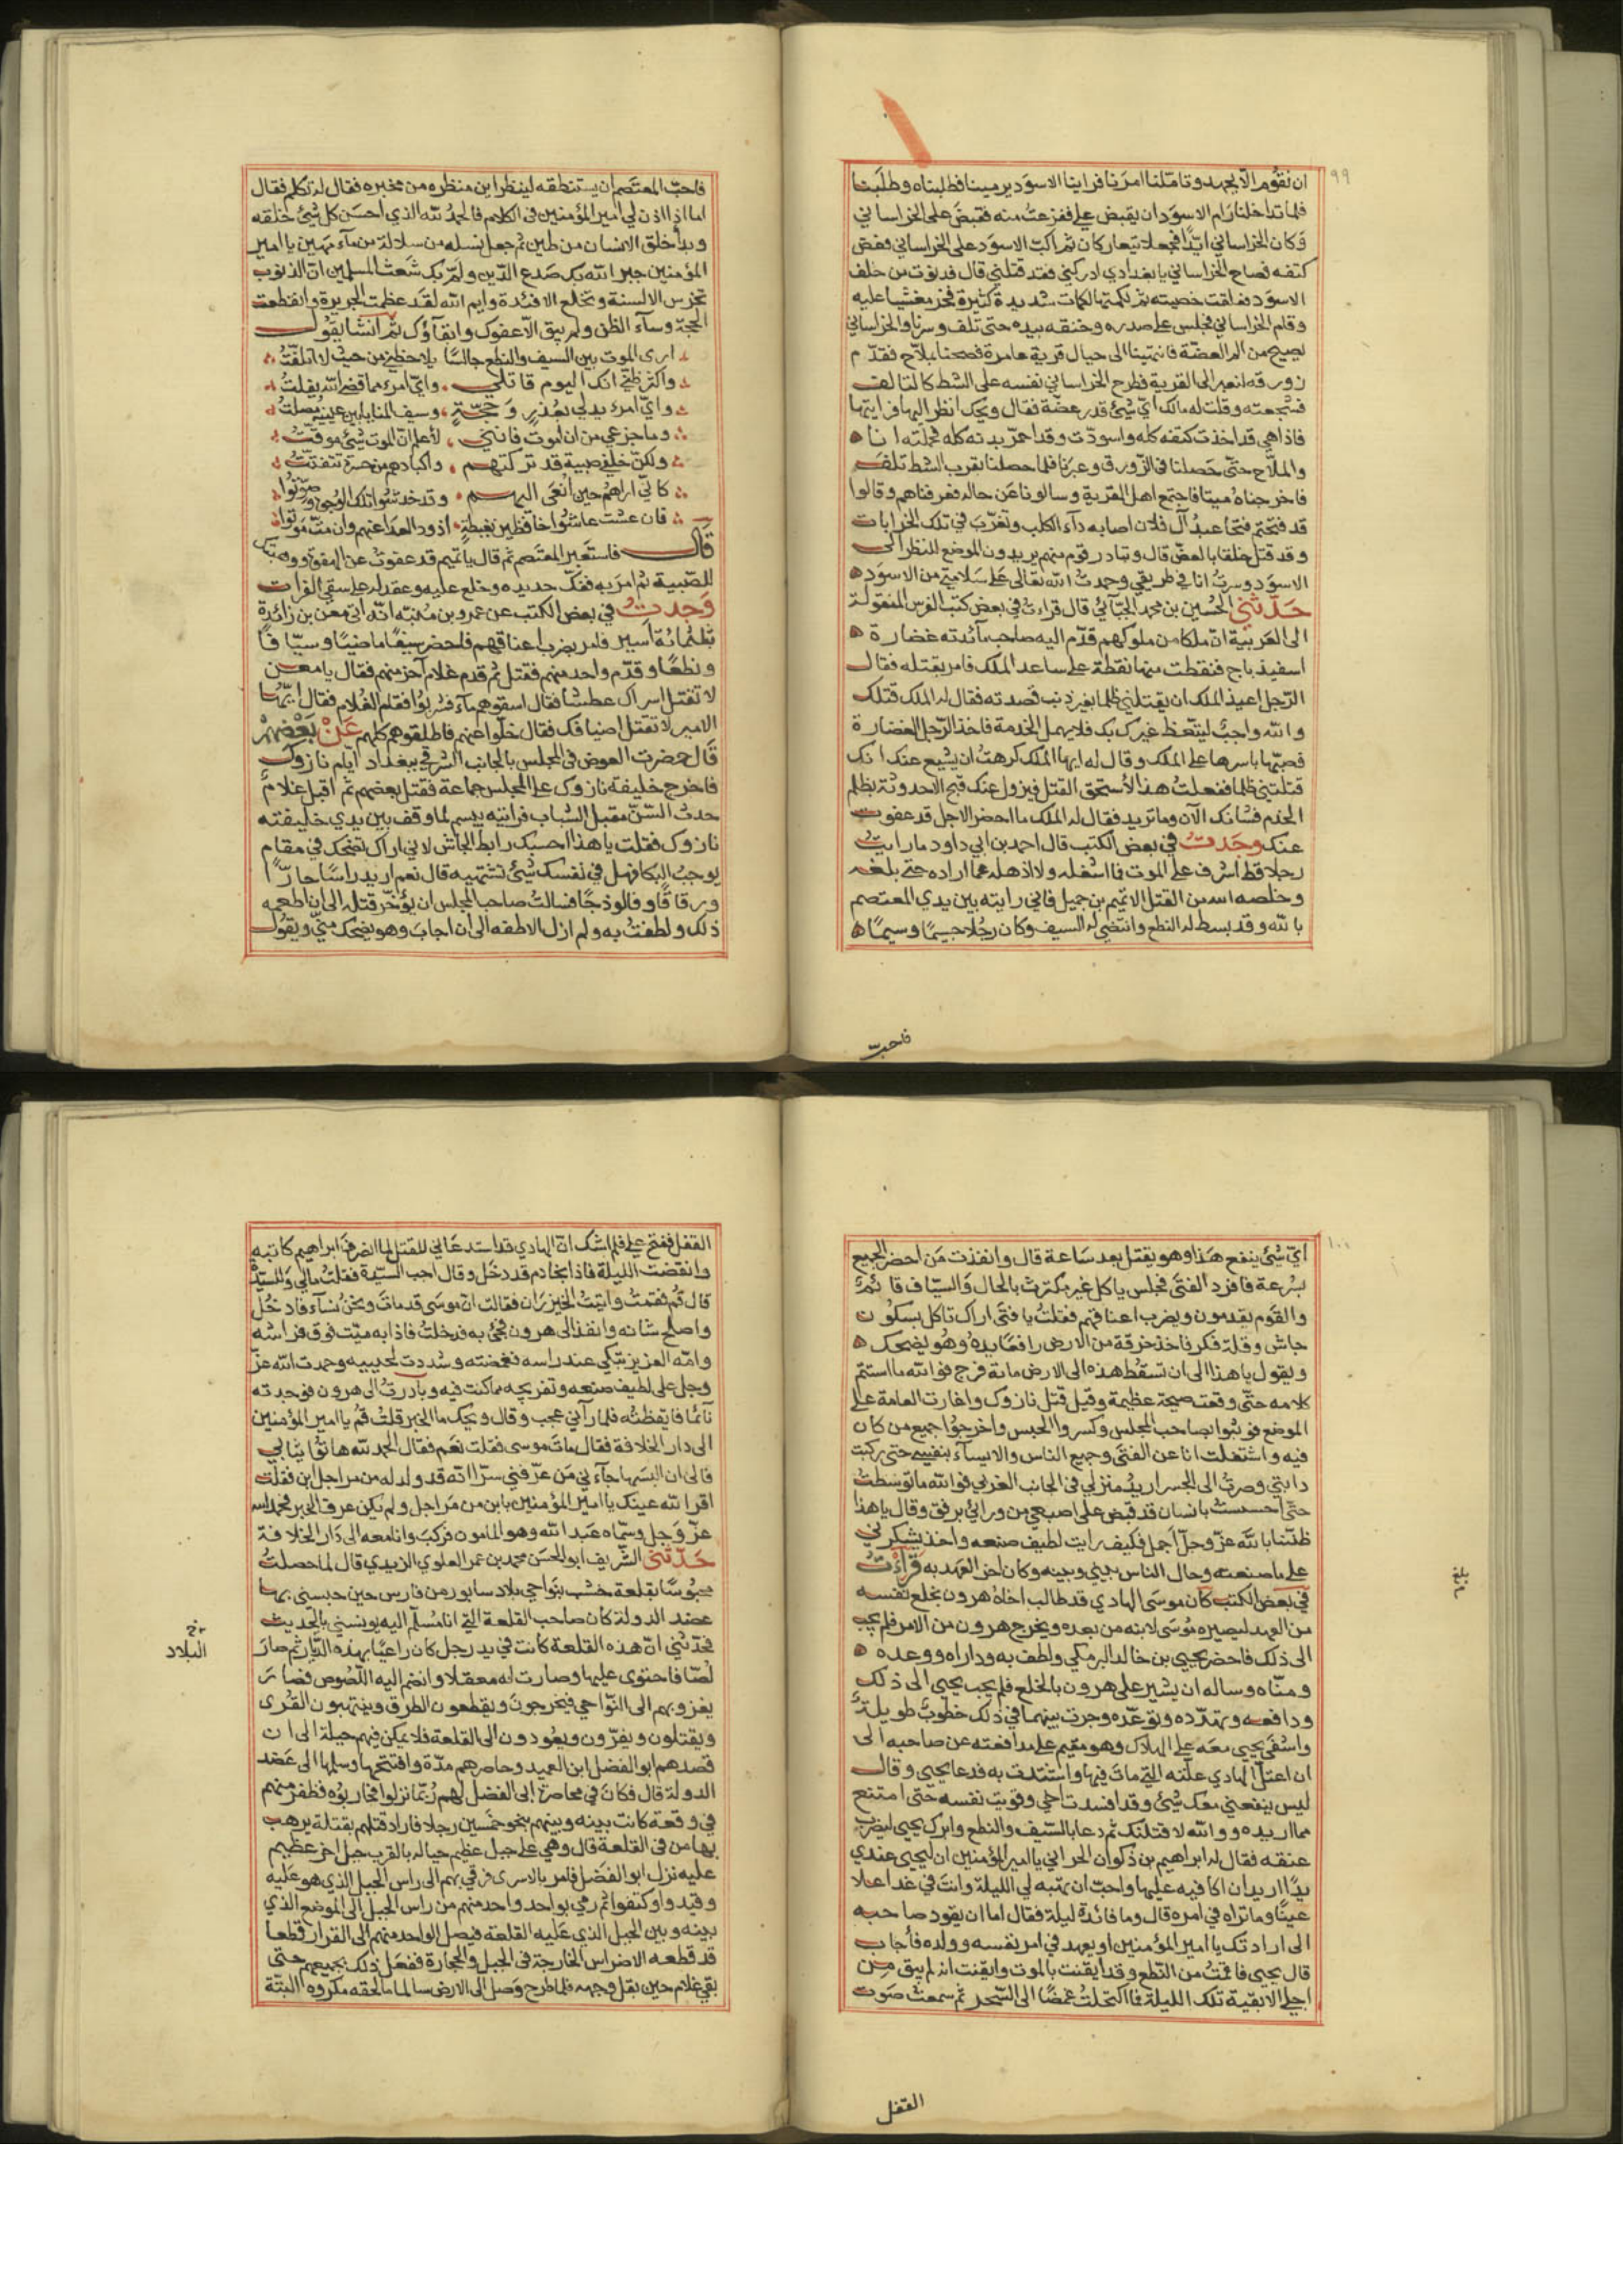 ٩٩
ان نقوم الا بجهد وتاملنا امرنا فراينا الاسود يرمينا فطلبناه وطلبنا
فلما تداخلنا رام الاسود ان يقبض علي ففزعت منه فقبض على الخراساني
وكان الخراساني ايدا فجعلا يتعاركان ثم اكب الاسود على الخراساني فعض
كتفه فصاح الخراساني يا بغدادي ادركني فقد قتلني قال فدنوت من خلف
الاسود فعلقت خصيته ثم لكمتها لكمات شديدة كثيرة فخر مغشيا عليه
وقام الخراساني فجلس على صدره وخنقه بيده حتى تلف وسرنا والخراساني
يصيح من الم العضة فانتهينا الى حيال قرية عامرة فصحنا بملاح فقدم
زورقه لنعبر الى القرية فطرح الخراساني نفسه على الشط كالتالف
فشجعته وقلت له مالك اي شئ قدر عضة فقال ويحك انظر اليها فرايتها
فاذا هي قد اخذت كتفه كله واسودت وقد احمر بدنه كله فحملته انا
والملاح حتى حصلنا في الزورق وعبرنا فلما حصلنا بقرب الشط تلف
فاخرجناه ميتا فاجتمع اهل القرية وسالونا عن حاله فعرفناهم وقالوا
قد فتحتم فتحا عبد آل فلان اصابه داء الكلب وتغرب في تلك الخرابات
وقد قتل خلقا بالعض قال وتبادر قوم منهم يريدون الموضع للنظر الى
الاسود وسرت انا في طريقي وحمدت الله تعالى على سلامتي من الاسود
حدثني الحسين بن محمد الجبائي قال قراءت في بعض كتب الفرس المنقولة
الى العربية ان ملكا من ملوكهم قدم اليه صاحب مائدته غضارة
اسفيذباج فنقطت منها نقطة على ساعد الملك فامر بقتله فقال
الرجل اعيذ الملك ان يقتلني ظلما بغير ذنب قصدته فقال له الملك قتلك
والله واجب ليتعظ غيرك بك فلا يهمل الخدمة فاخذ الرجل الغضارة
فصبها باسرها على الملك وقال له ايها الملك كرهت ان يشيع عنك انك
قتلتني ظلما ففعلت هذا لاستحق القتل فيزول عنك قبح الاحدوثة بظلم
الخدم فشانك الآن وما تريد فقال له الملك ما احضر الاجل قد عفوت
عنك وجدت في بعض الكتب قال احمد بن ابي داود ما رايت
رجلا قط اشرف على الموت فما اشغله ولا اذهله عما اراده حتى بلغه
وخلصه الله من القتل الا تميم بن جميل فاني رايته بين يدي المعتصم
بالله وقد بسط له النطع وانتضي له السيف وكان رجلا جسيما وسيما
فاحب
فاحب المعتصم ان يستنطقه لينظر اين منظره من مخبره فقال له تكلم فقال
اما اذا اذن لي امير المؤمنين في الكلام فالحمد لله الذي احسن كل شئ خلقه
وبدأ خلق الانسان من طين ثم جعل نسله من سلالة من ماء مهين يا امير
المؤمنين جبر الله بك صدع الدين ولم بك شعث المسلمين ان الذنوب
تخرس الالسنة وتخلع الافئدة وايم الله لقد عظمت الجريرة وانقطعت
الحجة وساء الظن ولم يبق الا عفوك وانقآؤك ثم انشا يقول
ارى الموت بين السيف والنطع جالسا يلاحظني من حيث لا اتلفت
واكثر ظني انك اليوم قاتلي واي امرء مما قضى الله يفلت
واي امرء يدلي بعذر وحجة وسيف المنايا بين عينيه مصلت
وما جزعي من ان اموت فانني لأعلم ان الموت شئ موقت
ولكن خلفي صبية قد تركتهم واكبادهم من حسرة تتفتت
كاني اراهم حين انعى اليهم وقد خدشوا تلك الوجوه وصوتوا
فان عشت عاشوا خافظين بغبطة اذود العدا عنهم وان مت موتوا
قال فاستعبر المعتصم ثم قال يا تميم قد عفوت عن الهفوة ووهبتك
للصبية ثم امر به ففك حديده وخلع عليه وعقد له على سقي الفرات
وجدت في بعض الكتب عن عمرو بن منبه انه اتى معن بن زائدة
بثلثمائة اسير فامر بضرب اعناقهم فاحضر سيفا ماضيا وسيافا
ونطعا وقدم واحد منهم فقتل ثم قدم غلام آخر منهم فقال يا معن
لا تقتل اسراك عطشا فقال اسقوهم ماء فشربوا فقام الغلام فقال ايها
الامير لا تقتل اضيافك فقال خلوا عنهم فاطلقوهم كلهم عن بعضهم
قال حضرت العرض في المجلس بالجانب الشرقي ببغداد ايام نازوك
فاخرج خليفة نازوك على المجلس جماعة فقتل بعضهم ثم اقبل غلام
حدث السن مقبل الشباب فرايته يبسم لما وقف بين يدي خليفته
نازوك فقلت يا هذا احسبك رابط الجاش لاني اراك تضحك في مقام
يوجب البكا فهل في نفسك شئ تشتهيه قال نعم اريد راسا حارا
ورقاقا وفالوذجا فسالت صاحب المجلس ان يؤخر قتله الى ان اطعمه
ذلك ولطفت به ولم ازل الاطفه الى ان اجاب وهو يضحك مني ويقول
١٠٠
اي شئ ينفع هذا وهو يقتل بعد ساعة قال وانفذت من احضر الجميع
بسرعة فافرد الفتى فجلس ياكل غير مكترث بالحال والسياف قائم
والقوم يقدمون ويضرب اعناقهم فقلت يا فتى اراك تاكل بسكون
جاش وقلة فكر فاخذ خرقة من الارض رافعا يده وهو يضحك
ويقول يا هذا الى ان تسقط هذه الى الارض ماية فرج فوالله ما استتم
كلامه حتى وقعت صيحة عظيمة وقيل قتل نازوك واغارت العامة على
الموضع فوثبوا بصاحب المجلس وكسروا الحبس واخرجوا جميع من كان
فيه واشتغلت انا عن الفتى وجميع الناس والاسياء بنفسي حتى ركبت
دابتي وصرت الى الجسر اريد منزلي في الجانب الغربي فوالله ما توسطت
حتى احسست بانسان قد قبض على اصبعي من ورائي برفق وقال يا هذا
ظننا بالله عز وجل اجمل فكيف رايت لطيف صنعه واخذ يشكرني
على ما صنعته وحال الناس بيني وبينه وكان اخر العهد به قراءت
في بعض الكتب كان موسى الهادي قد طالب اخاه هرون بخلع نفسه
من العهد ليصيره موسى لابنه من بعده ويخرج هرون من الامر فلم يجب
الى ذلك فاحضر يحيى بن خالد البرمكي ولطف به وداراه ووعده
ومناه وساله ان يشير على هرون بالخلع فلم يجب يحيى الى ذلك
ودافعه وتهدده وتوعده وجرت بينهما في ذلك خطوب طويلة
واشفى يحيى معه على الهلاك وهو مقيم على مدافعته عن صاحبه الى
ان اعتل الهادي علته التي مات فيها واشتدت به فدعا يحيى وقال
ليس ينفعني معك شئ وقد افسدت اخي وقويت نفسه حتى امتنع
مما اريده ووالله لاقتلنك ثم دعا بالسيف والنطع وابرك يحيى ليضرب
عنقه فقال له ابراهيم بن ذكوان الحراني يا امير المؤمنين ان ليحيى عندي
يدا اريد ان اكافيه عليها واحب ان تهبه لي الليلة وانت في غد اعلا
عينا وما تراه في امره قال وما فائدة ليلة فقال اما ان يقود صاحبه
الى ارادتك يا امير المؤمنين او يعهد في امر نفسه وولده فأجاب
قال يحيى فاقمت من النطع وقد ايقنت بالموت وايقنت انه لم يبق من
اجلي الا بقية تلك الليلة فما اكتحلت غمضا الى السحر ثم سمعت صوت
القفل
القفل ففتح علي فلم اشك ان الهادي قد استدعاني للقتل لما انصرف ابراهيم كاتبه
وانقضت الليلة فاذا بخادم قد دخل وقال اجب السيدة فقلت مالي وللسيدة
قال قم فقمت واتيت الخيزران فقالت ان موسى قد مات ونحن نساء فادخل
واصلح شانه وانفذ الى هرون فجئ به فدخلت فاذا به ميت فوق فراشه
وامه العزيز تبكي عند راسه فغمضته وشددت لحييه وحمدت الله عز
وجل على لطيف صنعه وتفريجه ما كنت فيه وبادرت الى هرون فوجدته
نآئما فايقظته فلما رآني عجب وقال ويحك ما الخبر قلت قم يا امير المؤمنين
الى دار الخلافة فقال مات موسى فقلت نعم فقال الحمد لله هاتوا ثيابي
فالى ان البسها جآءني من عرفني سرا انه قد ولد له من مراجل ابن فقلت
اقر الله عينك يا امير المؤمنين بابن من مراجل ولم يكن عرف الخبر فحمد الله
عز وجل وسماه عبد الله وهو المامون فركب وانا معه الى دار الخلافة
حدثني الشريف ابو الحسن محمد بن عمر العلوي الزيدي قال لما حصلت
محبوسا بقلعة خشب بنواحي بلاد سابور من فارس حين حبسني بها
عضد الدولة كان صاحب القلعة التي انا مسلم اليه يونسني بالحديث
فحدثني ان هذه القلعة كانت في يد رجل كان راعيا بهذه الديار ثم صار
البلاد
لصا فاحتوى عليها وصارت له معقلا وانضم اليه اللصوص فصار
يغزو بهم الى النواحي فيخرجون ويقطعون الطرق وينتهبون القرى
ويقتلون ويفرون ويعودون الى القلعة فلا يمكن فيهم حيلة الى ان
قصدهم ابو الفضل ابن العميد وحاصرهم مدة وافتتحها وسلمها الى عضد
الدولة قال فكان في محاصرة ابى الفضل لهم ربما نزلوا فحاربوه فظفر منهم
في وقعة كانت بينه وبينهم بنحو خمسين رجلا فاراد قتلهم بقتلة يرهب
بها من في القلعة قال وهي على جبل عظيم حياله بالقرب جبل اخر عظيم
عليه نزل ابو الفضل فامر بالاسرى فرقي بهم الى راس الجبل الذي هو عليه
وقيدوا وكتفوا ثم رمي بواحد واحد منهم من راس الجبل الى الموضع الذي
بينه وبين الجبل الذي عليه القلعة فيصل الواحد منهم الى القرار قطعا
قد قطعه الاضراس الخارجة في الجبل والحجارة ففعل ذلك بجميعهم حتى
بقي غلام حين بقل وجهه فلما طرح وصل الى الارض سالما ما لحقه مكروه البتة